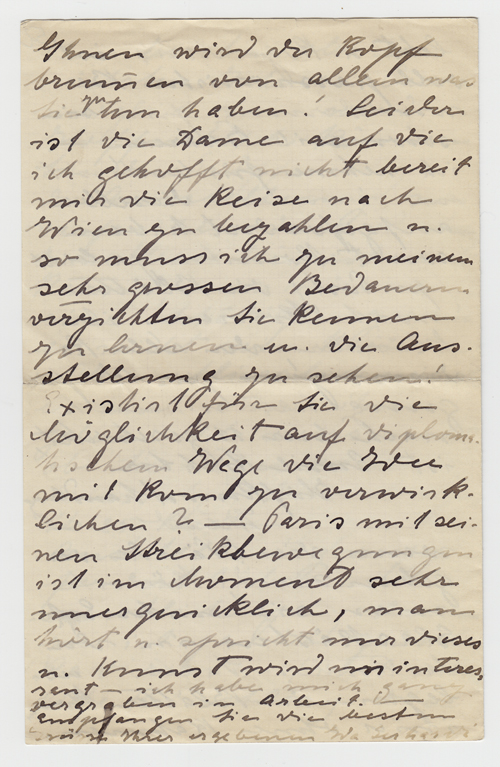 Ihnen wird der Kopf
brummen von allem was
Sie zu tun haben! Leider
ist die Dame auf die
ich gehofft nicht bereit
mir die Reise nach
Wien zu bezahlen u.
so muss ich zu meinem
sehr grossen Bedauern
verzichten Sie kennen
zu lernen u. die Aus-
stellung zu sehen!
Existirt für Sie die
Möglichkeit auf diploma-
tischem Wege die Idee
mit Rom zu verwirk-
lichen? — Paris mit sei-
nen Streikbewegungen
ist im Moment sehr
unerquicklich, man
hört u. spricht nur dieses
u. Kunst wird uninteres-
sant — ich habe mich ganz
vergraben in Arbeit. —
Empfangen Sie die besten
Ihrer ergebenen